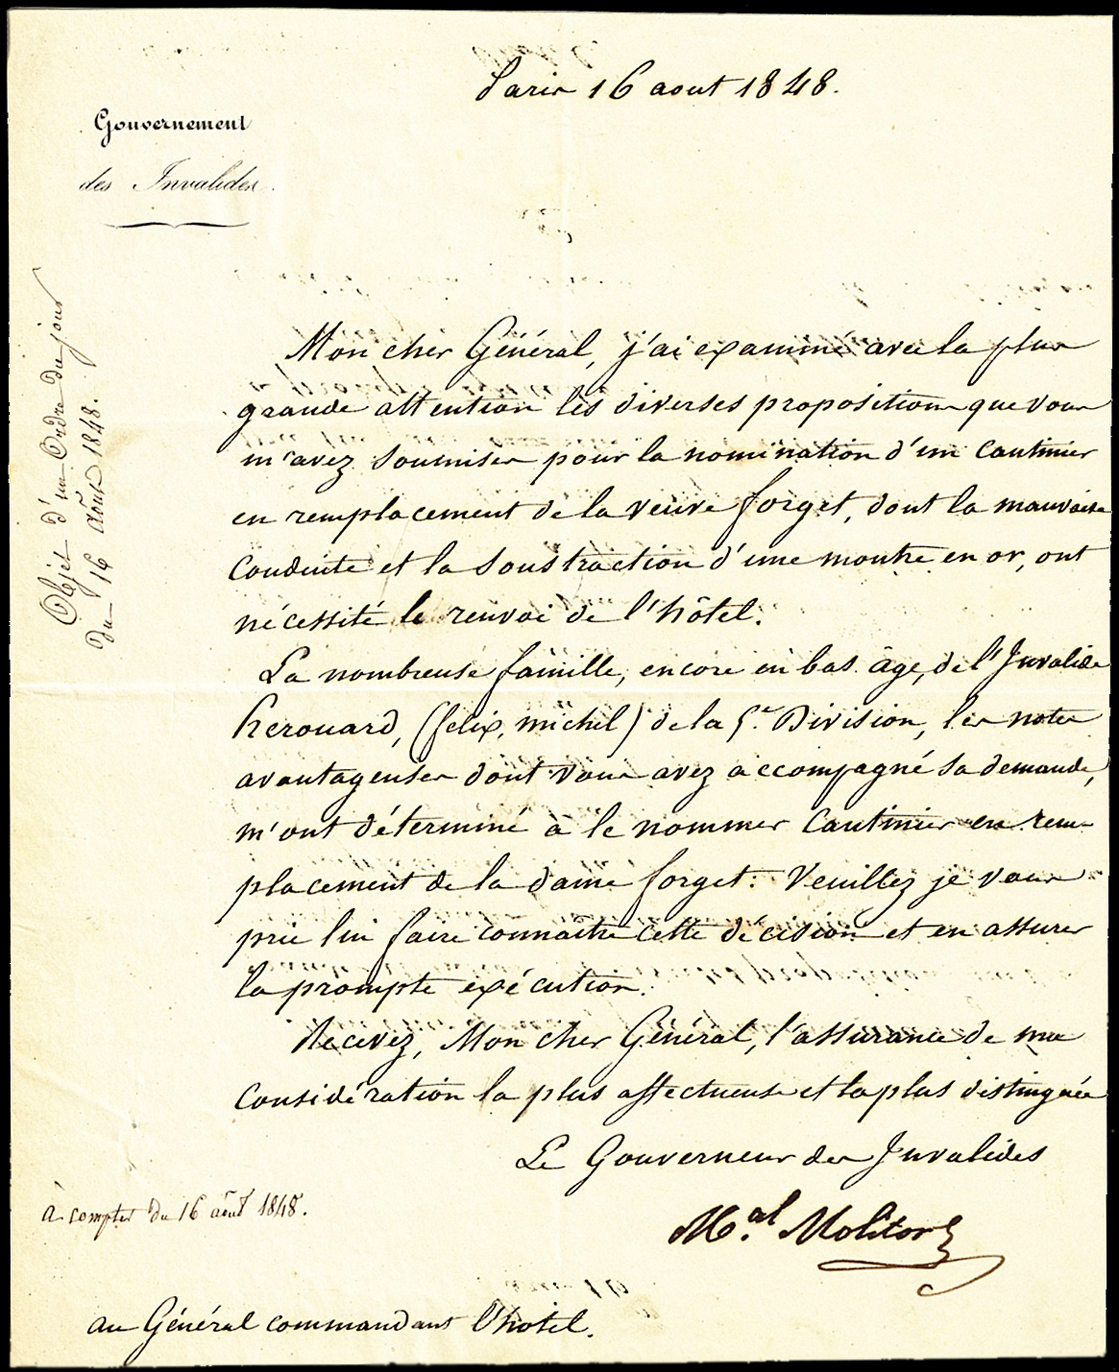 Paris 16 aout 1848.
Gouvernement
des Invalides.
Objet d'un Ordre du jour
du 16 Août 1848.
Mon cher Général, j'ai examiné avec la plus
grande attention les diverses propositions que vous
m'avez soumises pour la nomination d'un cantinier
en remplacement de la veuve forget, dont la mauvaise
conduite et la soustraction d'une montre en or, ont
nécessité le renvoi de l'hôtel.
La nombreuse famille, encore en bas âge, de l'Invalide
herouard, (felix, michel) de la 5.e Division, les notes
avantageuses dont vous avez accompagné sa demande,
m'ont déterminé à le nommer Cantinier en rem-
placement de la dame forget. Veuillez je vous
prie lui faire connaitre cette décision et en assurer
la prompte exécution.
Recevez, Mon cher Général, l'assurance de ma
considération la plus affectueuse et la plus distinguée
Le Gouverneur des Invalides
M.al Molitor
à compter du 16 août 1848.
au Général commandant l'hotel.